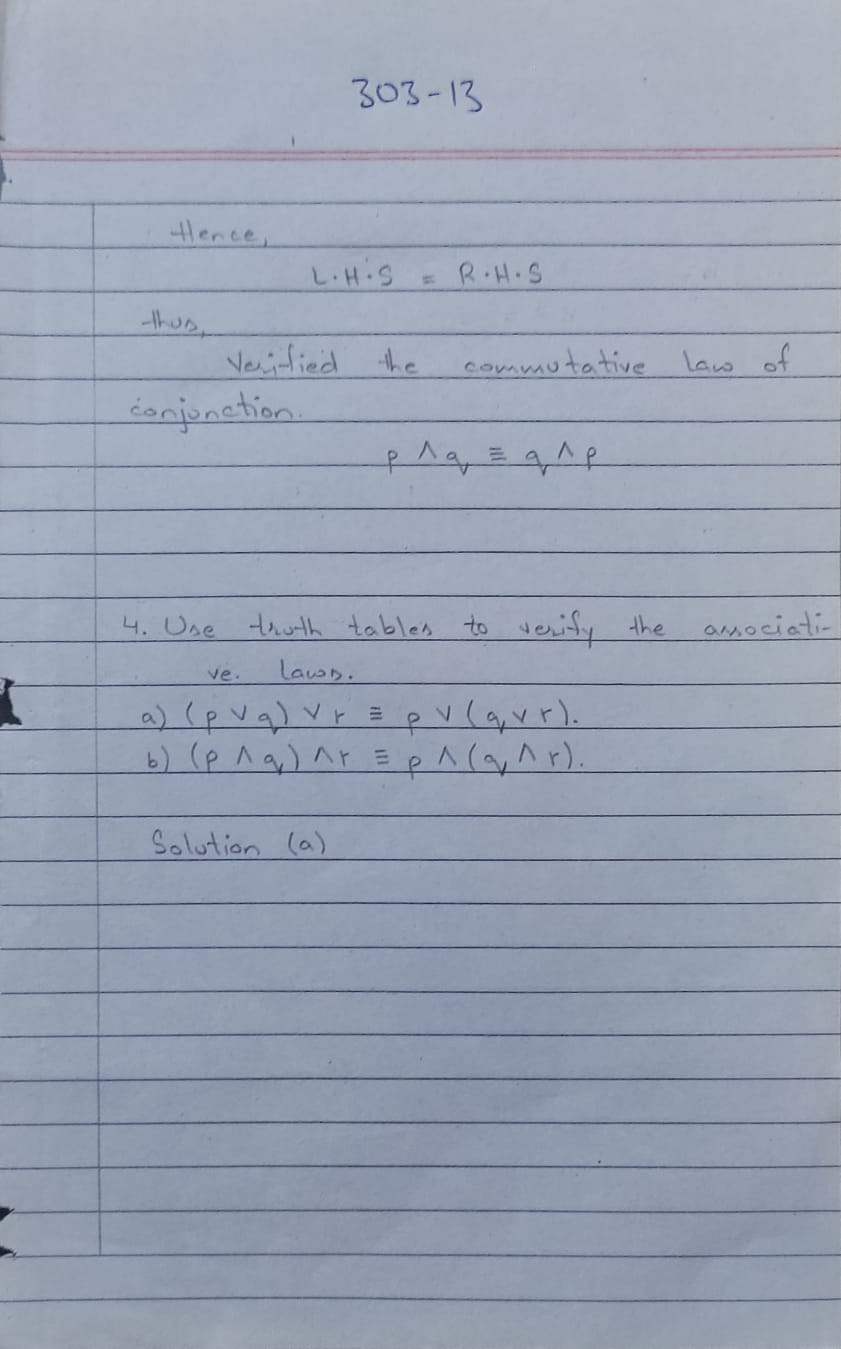 303-13
Hence,
L.H.S = R.H.S
thus,
Verified the commutative law of
conjunction.
p ∧ q ≡ q ∧ p
4. Use truth tables to verify the associati-
ve. laws.
a) (p ∨ q) ∨ r ≡ p ∨ (q ∨ r).
b) (p ∧ q) ∧ r ≡ p ∧ (q ∧ r).
Solution (a)